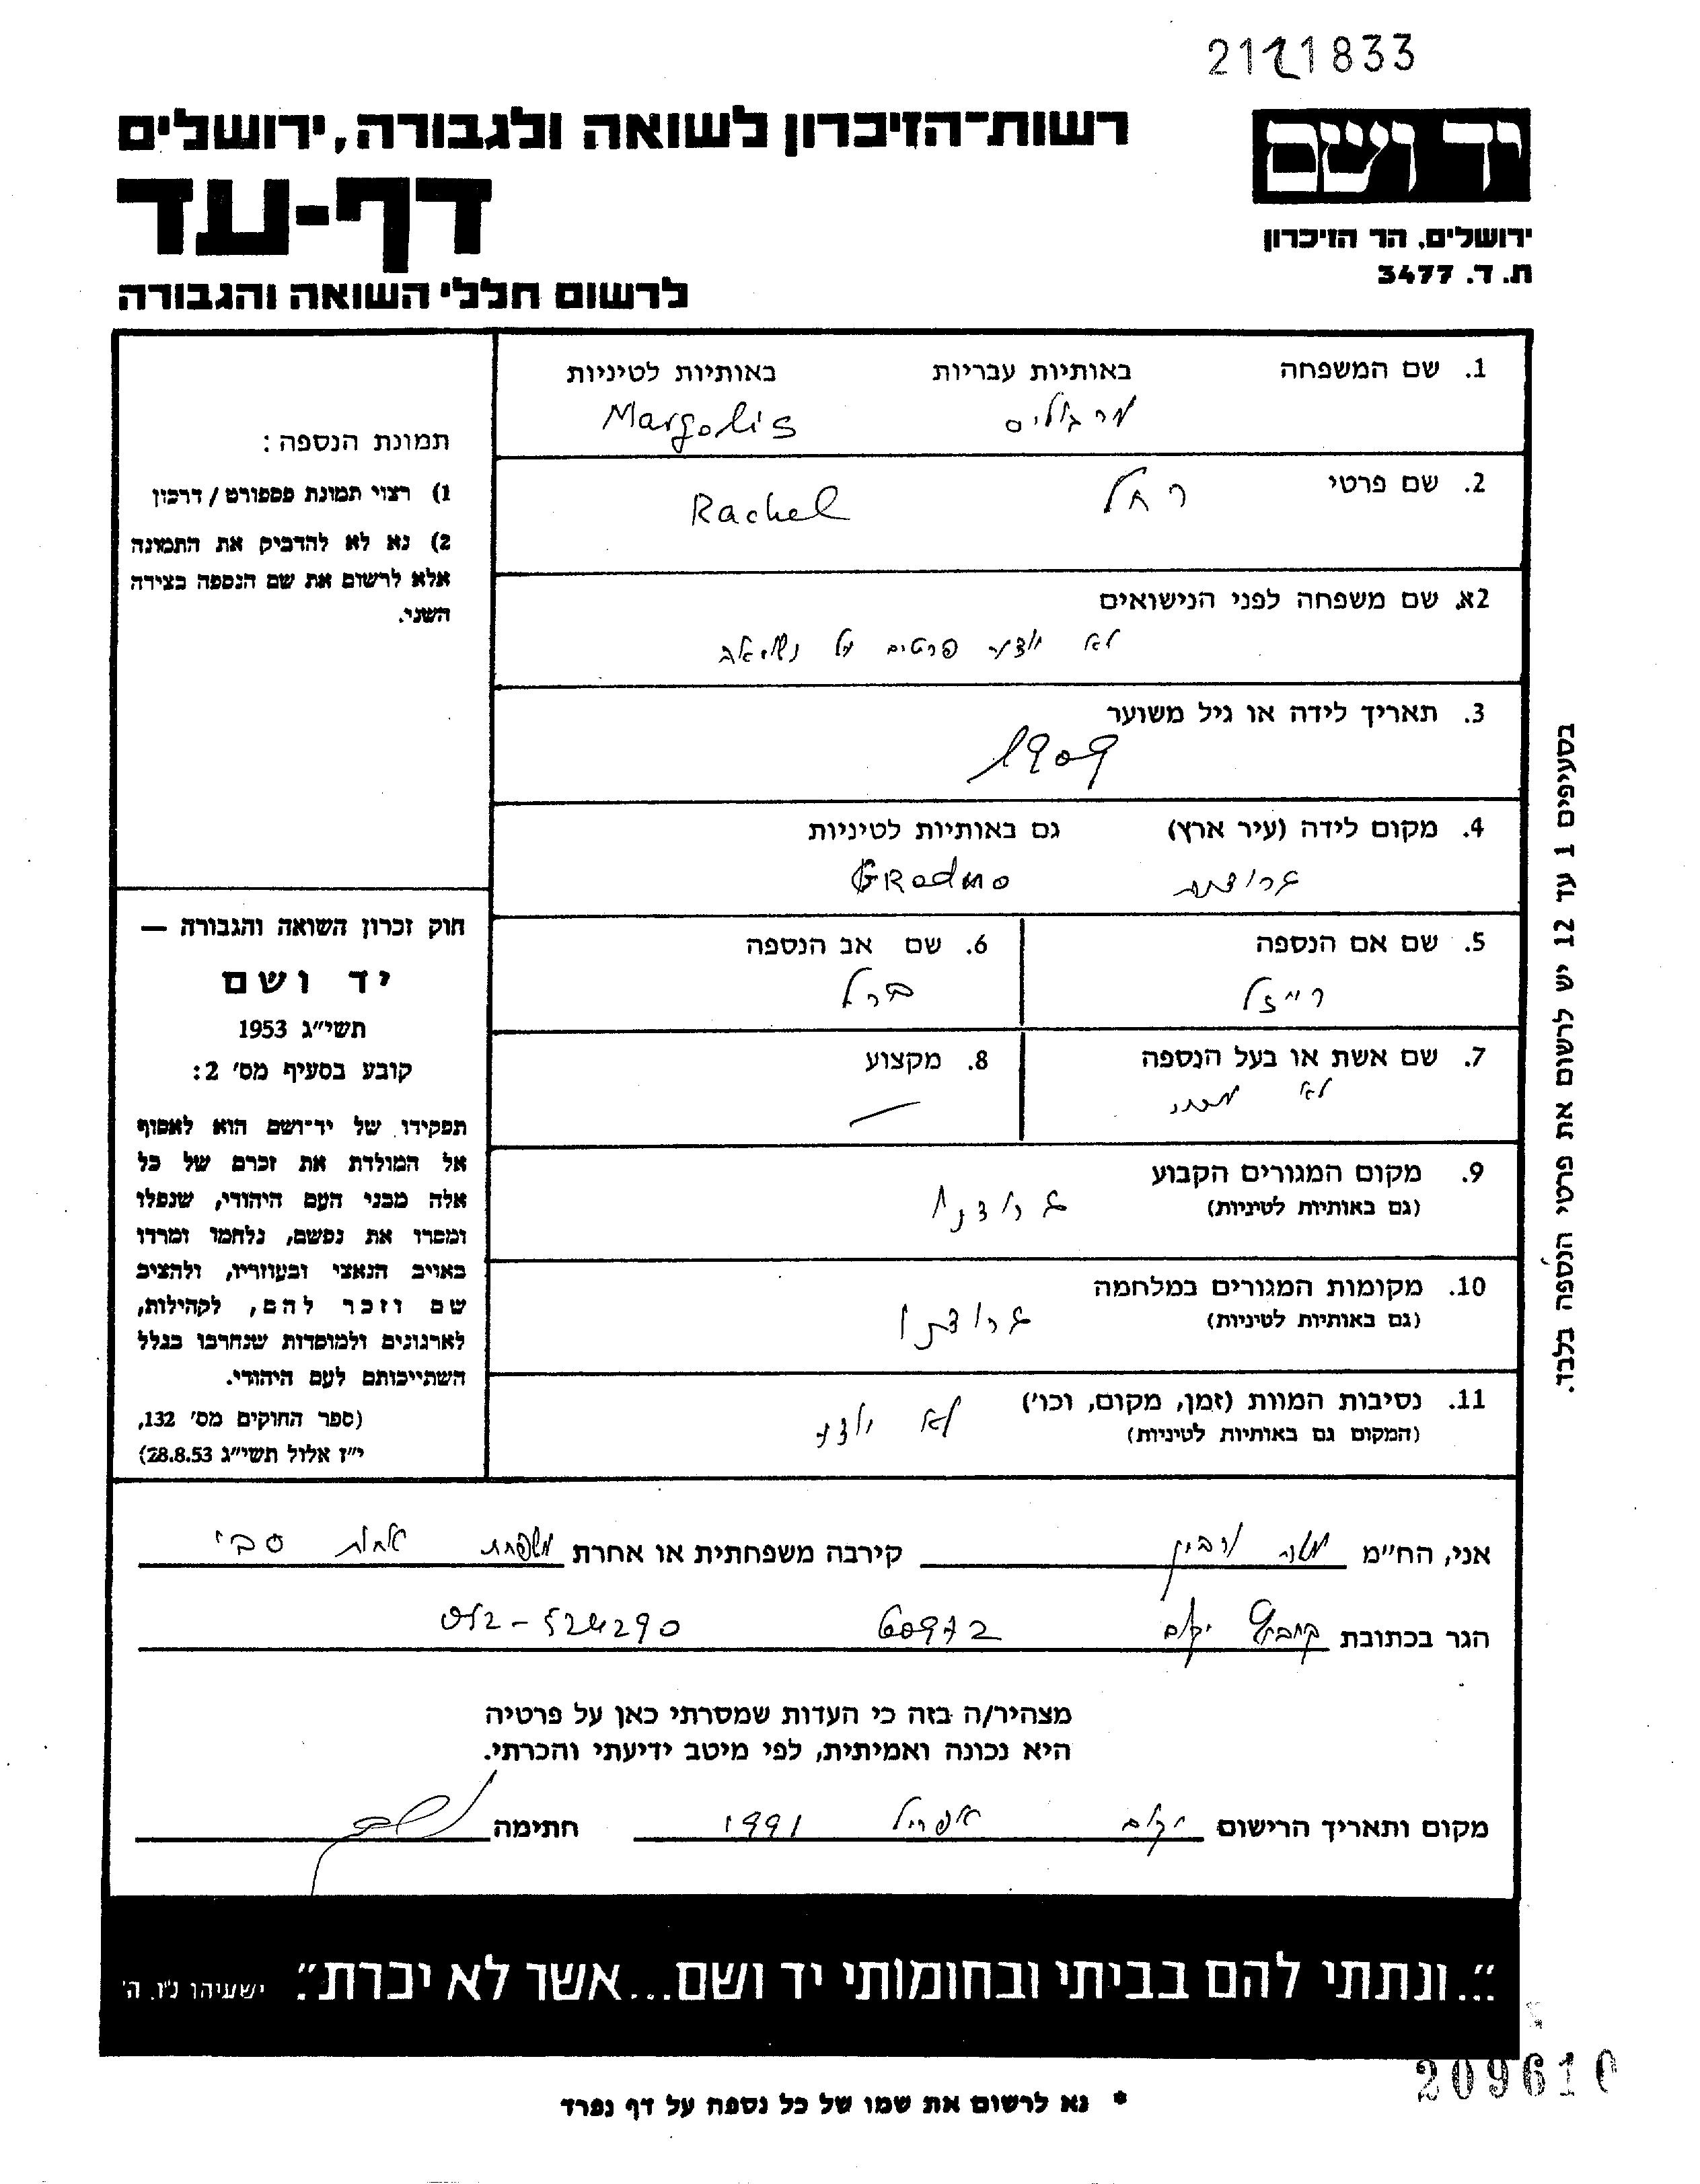 2111833
רשות־הזיכרון לשואה ולגבורה, ירושלים
יד ושם
דף-עד
ירושלים, הר הזיכרון
ת. ד. 3477
לרשום חללי השואה והגבורה
1. שם המשפחה באותיות עבריות באותיות לטיניות
מרגוליס Margolis
2. שם פרטי רחל Rachel
2א. שם משפחה לפני הנישואים
לא פרטים על
3. תאריך לידה או גיל משוער
1909
4. מקום לידה (עיר ארץ) גם באותיות לטיניות
גרודנו GRodno
5. שם אם הנספה 6. שם אב הנספה
רייזל ברל
7. שם אשת או בעל הנספה 8. מקצוע
לא —
9. מקום המגורים הקבוע
(גם באותיות לטיניות)
גרודנו
10. מקומות המגורים במלחמה
(גם באותיות לטיניות)
גרודנו
11. נסיבות המוות (זמן, מקום, וכו')
(המקום גם באותיות לטיניות)
לא ידוע
תמונת הנספה:
1) רצוי תמונת פספורט / דרכון
2) נא לא להדביק את התמונה
אלא לרשום את שם הנספה בצידה
השני.
חוק זכרון השואה והגבורה —
יד ושם
תשי"ג 1953
קובע בסעיף מס' 2:
תפקידו של יד־ושם הוא לאסוף
אל המולדת את זכרם של כל
אלה מבני העם היהודי, שנפלו
ומסרו את נפשם, נלחמו ומרדו
באויב הנאצי ובעוזריו, ולהציב
שם וזכר להם, לקהילות,
לארגונים ולמוסדות שנחרבו בגלל
השתייכותם לעם היהודי.
(ספר החוקים מס' 132,
י"ז אלול תשי"ג 28.8.53)
בסעיפים 1 עד 12 יש לרשום את פרטי הנספה בלבד.
אני, הח"מ קירבה משפחתית או אחרת משפחת אחות סבי
הגר בכתובת קיבוץ יקום 60972 052-524290
מצהיר/ה בזה כי העדות שמסרתי כאן על פרטיה
היא נכונה ואמיתית, לפי מיטב ידיעתי והכרתי.
מקום ותאריך הרישום יקום אפריל 1991 חתימה
"...ונתתי להם בביתי ובחומותי יד ושם...אשר לא יכרת". ישעיהו נ"ו, ה'
209610
* נא לרשום את שמו של כל נספה על דף נפרד